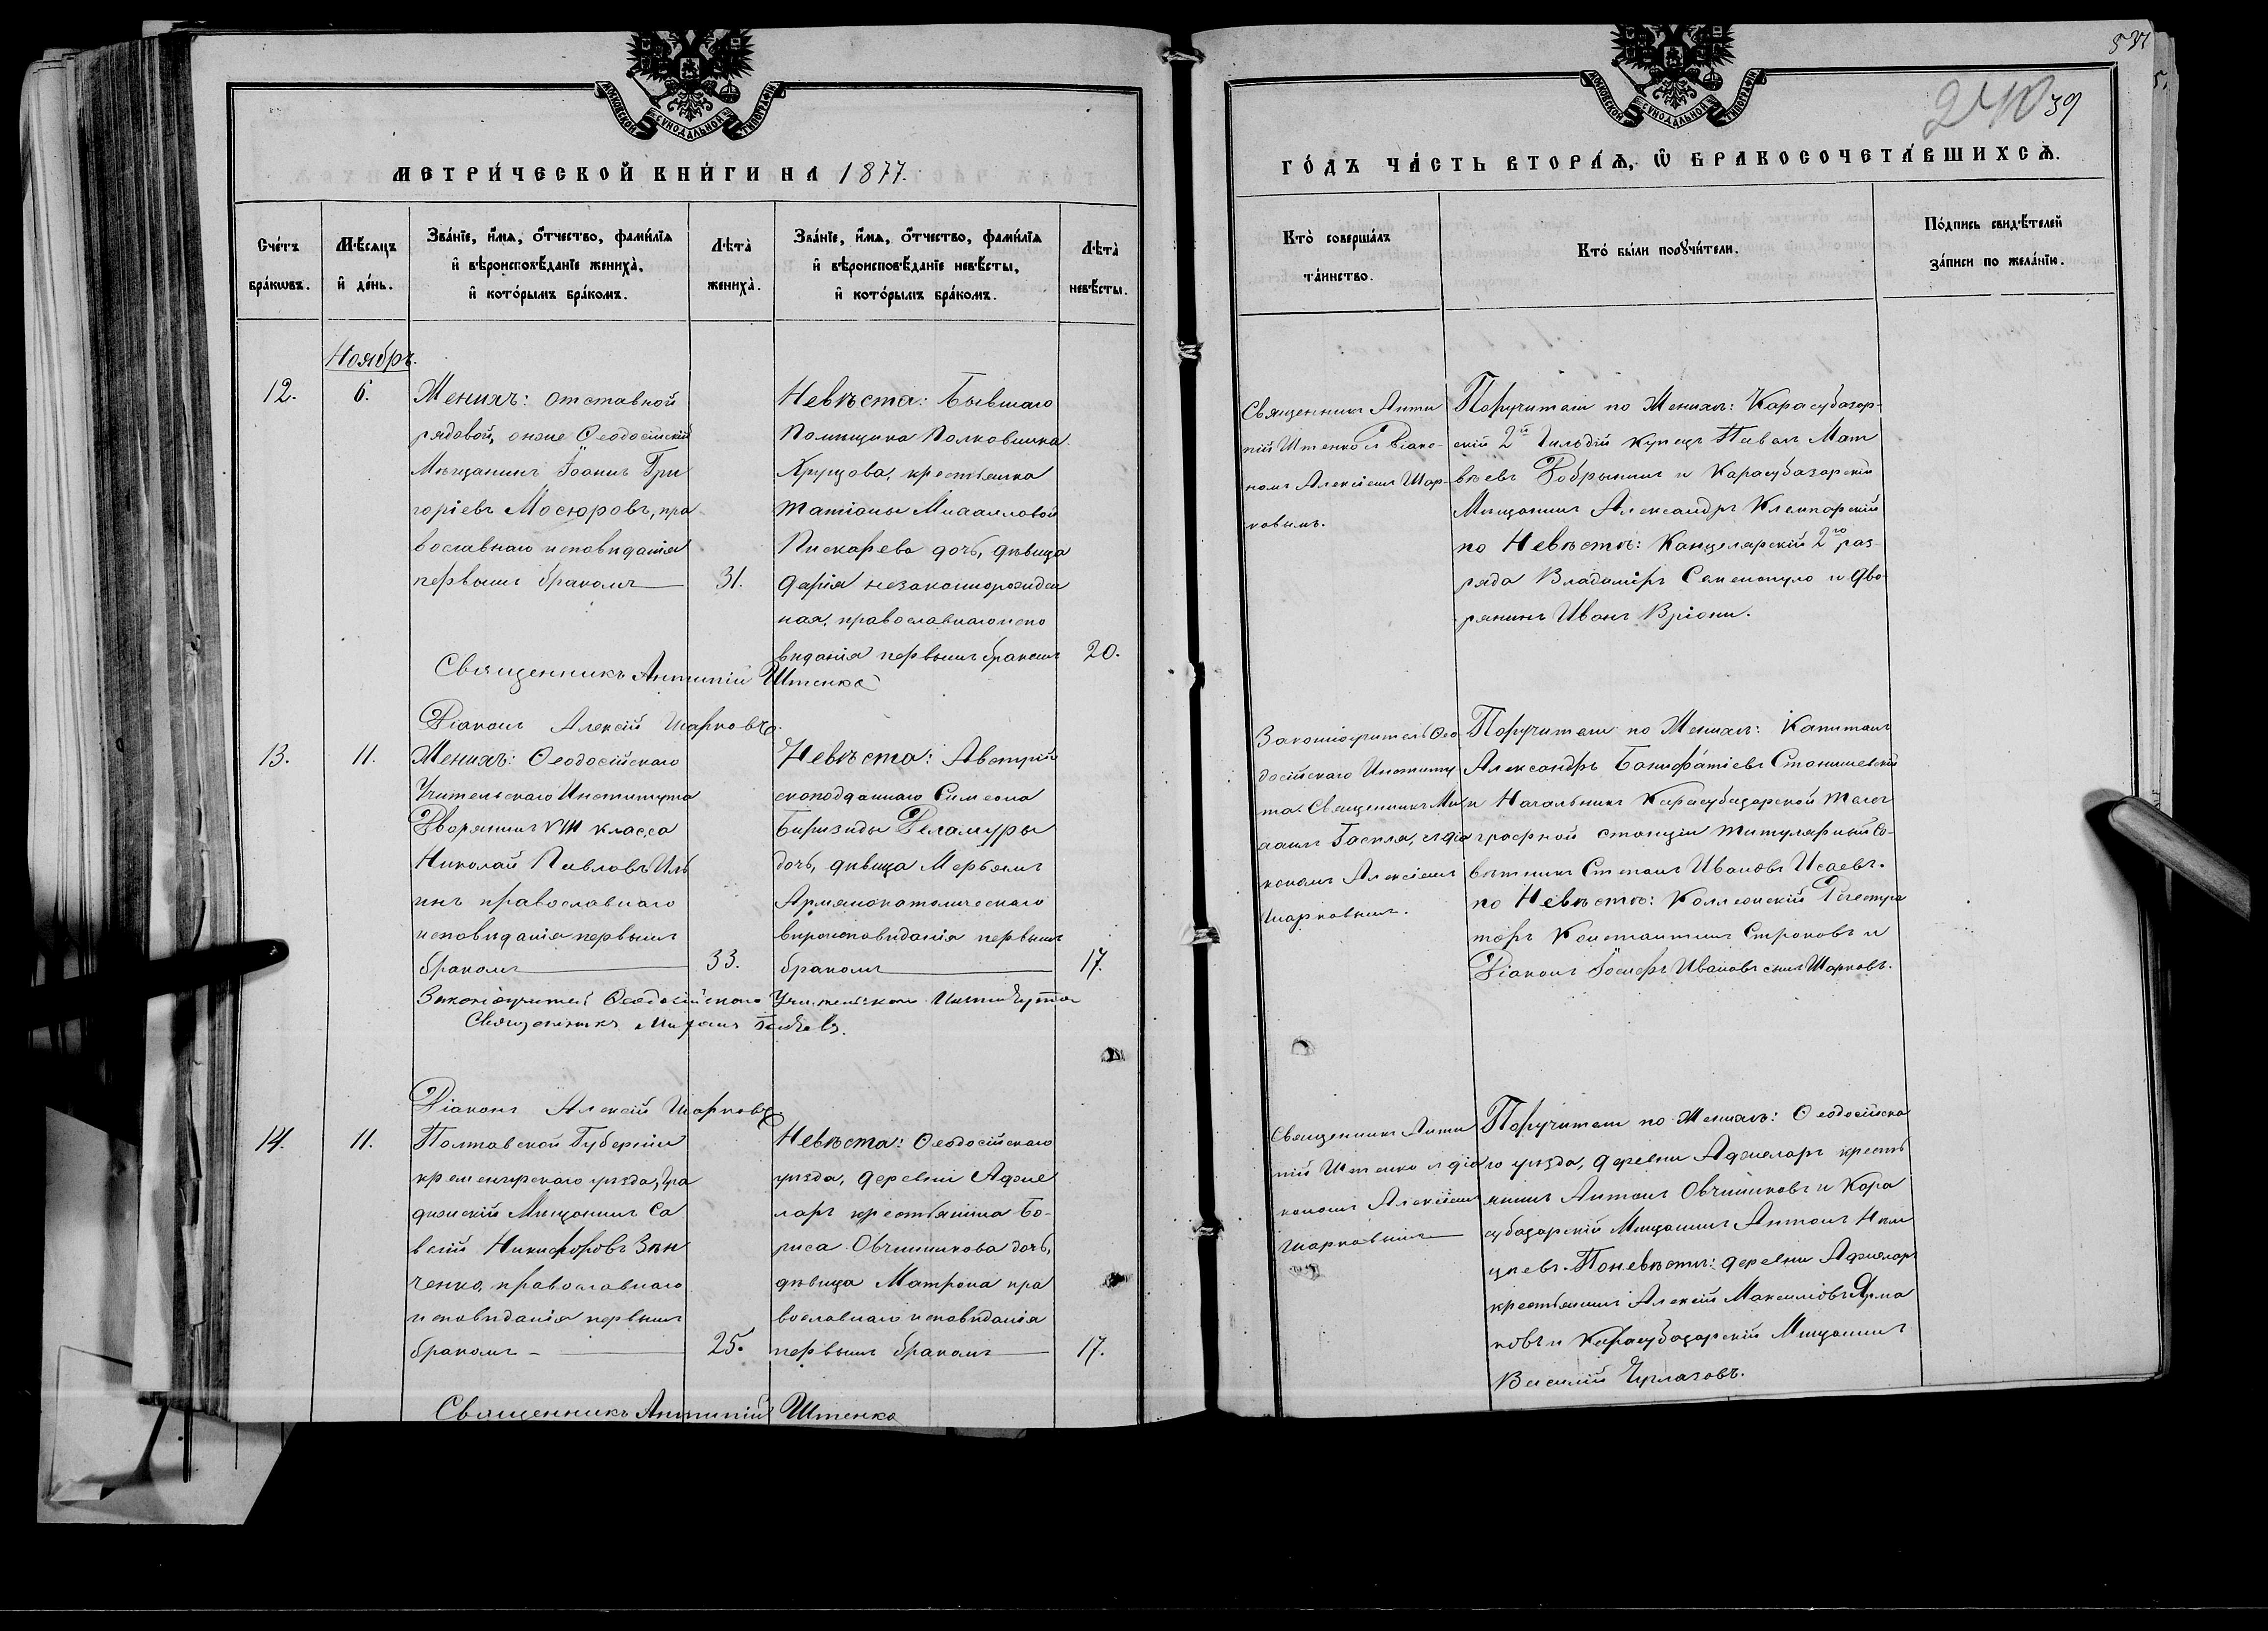 МОСКОВСКОЙ СѴНОДАЛЬНОЙ ТИПОГРАФІИ
МЕТРИ́ЧЕСКОЙ КНИ́ГИ НА 1877.
Сче́тъ бра́кωвъ.
Мѣ́сяцъ и҆ де́нь.
Зва́нїе, и҆́мя, ѻ҆́тчество, фами́лїя и҆ вѣроисповѣ́данїе жениха̀, и҆ кото́рымъ бра́комъ.
Лѣта̀ жениха̀.
Зва́нїе, и҆́мя, ѻ҆́тчество, фами́лїя и҆ вѣроисповѣ́данїе невѣ́сты, и҆ кото́рымъ бра́комъ.
Лѣта̀ невѣ́сты.
Ноябрь.
12.
6.
Женихъ: отставной
рядовой, онже Ѳеодосійскій
Мѣщанинъ Іоаннъ Гри
горіевъ Мосюровъ, пра
вославнаго исповѣданія
первымъ бракомъ
31.
Невѣста: Бывшаго
Помѣщика Полковника
крестьянка
Татіаны Михаиловой
Пискарева дочь, дѣвица
Дарія незаконнорожден
ная, православнаго испо
вѣданія первымъ бракомъ
20.
Священникъ Антипій Штенко
Діаконъ Алексій Шарковъ.
13.
11.
Женихъ: Ѳеодосійскаго
Учительскаго Института
Дворянинъ VIII класса
Николай Павловъ Иль
инъ православнаго
исповѣданія первымъ
бракомъ
33.
Невѣста: Австрій
скоподданнаго Симеона
Деламуры
дочь, дѣвица Мерьемъ
Армянокатолическаго
вѣроисповѣданія первымъ
бракомъ
17.
Законоучитель Ѳеодосійскаго Учительскаго Института
Священникъ Михаилъ
Діаконъ Алексій Шарковъ
14.
11.
Полтавской Губерніи
кременчугскаго уѣзда, Гра
дижскій Мѣщанинъ Са
велій Никифоровъ Зѣн
ченко, православнаго
исповѣданія первымъ
бракомъ -
25.
Невѣста: Ѳеодосійскаго
уѣзда, деревни Аджи
ларъ крестьянина Бо-
риса Овчинникова дочь,
дѣвица Матрона пра
вославнаго исповѣданія
первымъ бракомъ
17.
Священникъ Антипій Штенко
МОСКОВСКОЙ СѴНОДАЛЬНОЙ ТИПОГРАФІИ
240
39
ГО́ДЪ ЧА́СТЬ ВТОРА́Я, Ѡ҆ БРАКОСОЧЕТА́ВШИХСЯ.
Кто̀ соверша́лъ та́инство.
Кто̀ бы́ли порꙋчи́тели.
По́дпись свидѣ́телей за́писи по жела́нїю.
Священникъ Анти
пій Штенко съ Діако-
номъ Алексіемъ Шар-
ковымъ.
Поручители по Женихѣ: Карасубазар-
скій 2й Гильдій купецъ Павелъ Мат
вѣевъ Добрынинъ и Карасубазарскій
Мѣщанинъ Александръ
по Невѣстѣ: Канцелярскій 2го раз-
ряда Владиміръ и Дво
рянинъ Иванъ Вріони.
Законоучитель Ѳео
досійскаго Институ
та. Священникъ Ми
хаилъ и діа
кономъ Алексіемъ
Шарковымъ.
Поручители по Женихѣ: Капитанъ
Александръ Бонифатіевъ Станишевскій
и Начальникъ Карасубазарской телег
графной станціи титулярный Со-
вѣтникъ Степанъ Ивановъ Исаевъ.
по Невѣстѣ: Коллежскій Регистра
торъ Константинъ Строковъ и
Діаконъ Іосифъ Ивановъ сынъ Шарковъ.
Священникъ Анти
пій Штенко и діа
кономъ Алексіемъ
Шарковымъ
Поручители по Женихѣ: Ѳеодосійска
го уѣзда, деревни Аджиларъ кресть
янинъ Антонъ Овчинниковъ и Кара
субазарскій Мѣщанинъ Антонъ
По невѣстѣ: деревни Аджиларъ
крестьянинъ Алексій Максимовъ Ярма
ковъ и Карасубазарскій Мѣщанинъ
Василій Чурлазовъ.